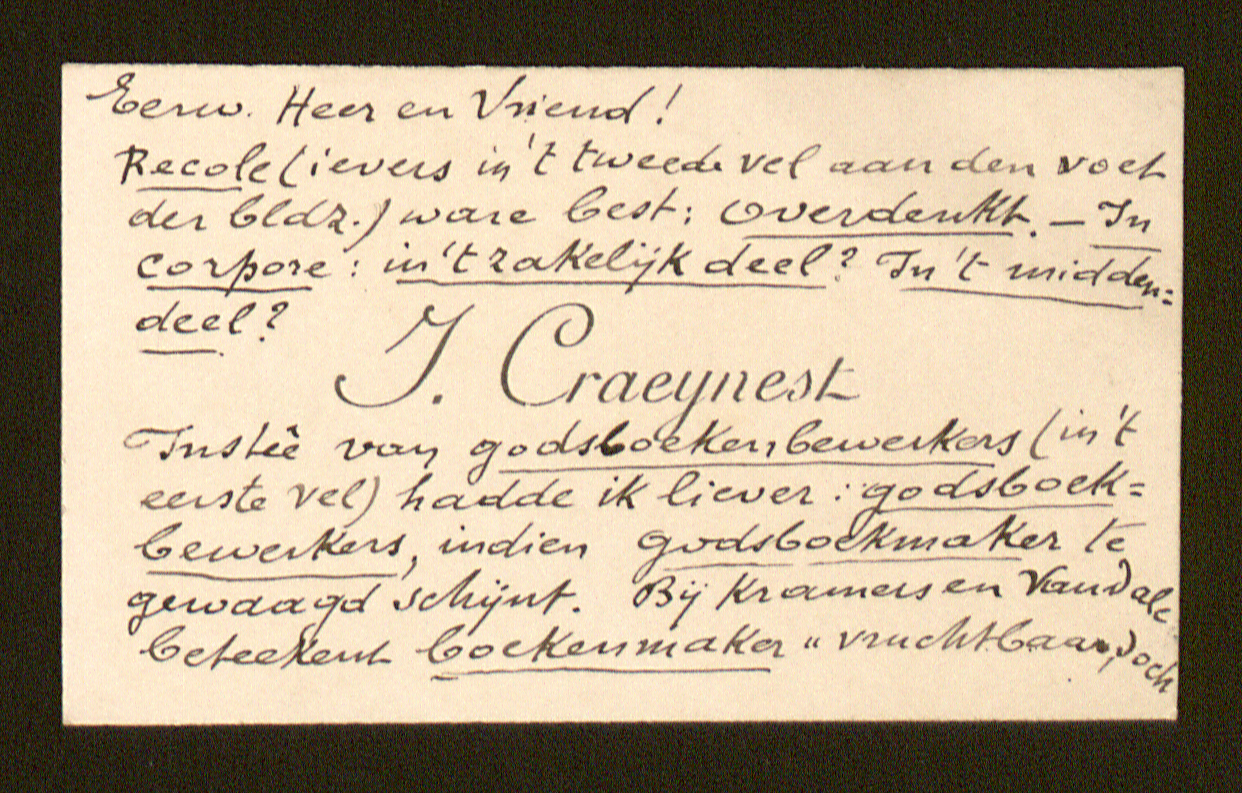 Eerw. Heer en Vriend!
Recole (ievers in 't tweede vel aan den voet
der bldz.) ware best: overdenkt. – In
corpore: in 't zakelijk deel? In 't midden=
deel?
J. Craeynest
Insteê van godsboekenbewerkers (in 't
eerste vel) hadde ik liever: godsboek=
bewerkers, indien godsboekmaker te
gewaagd schijnt. Bij Kramers en Van Dale
beteekent boekenmaker "vruchtbaar, doch